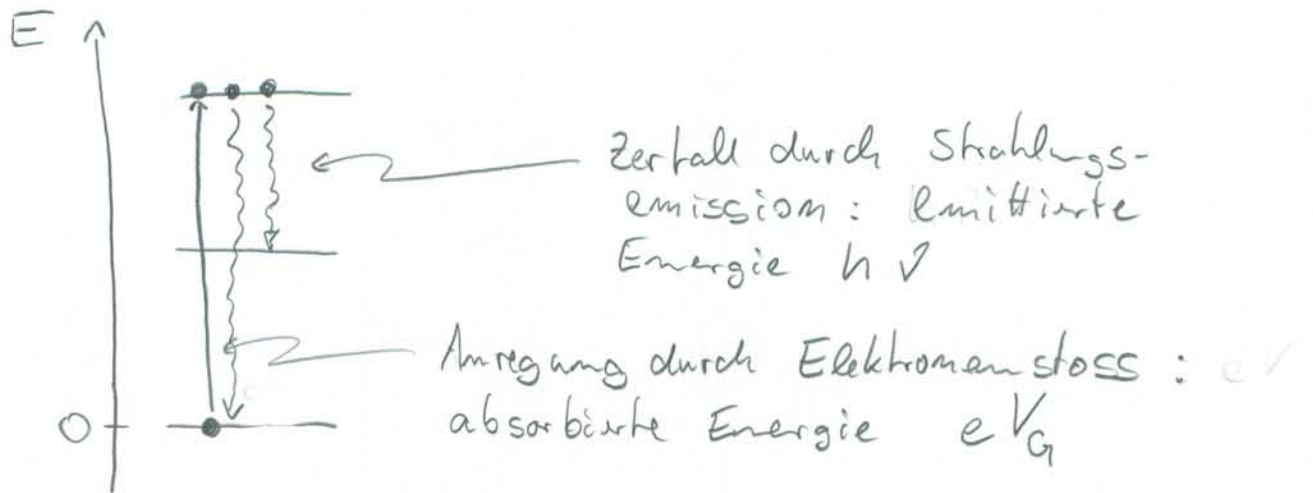 E
Zerfall durch Strahlungs-
emission: emittierte
Energie hν
Anregung durch Elektronenstoss:
absorbierte Energie eV_G
0